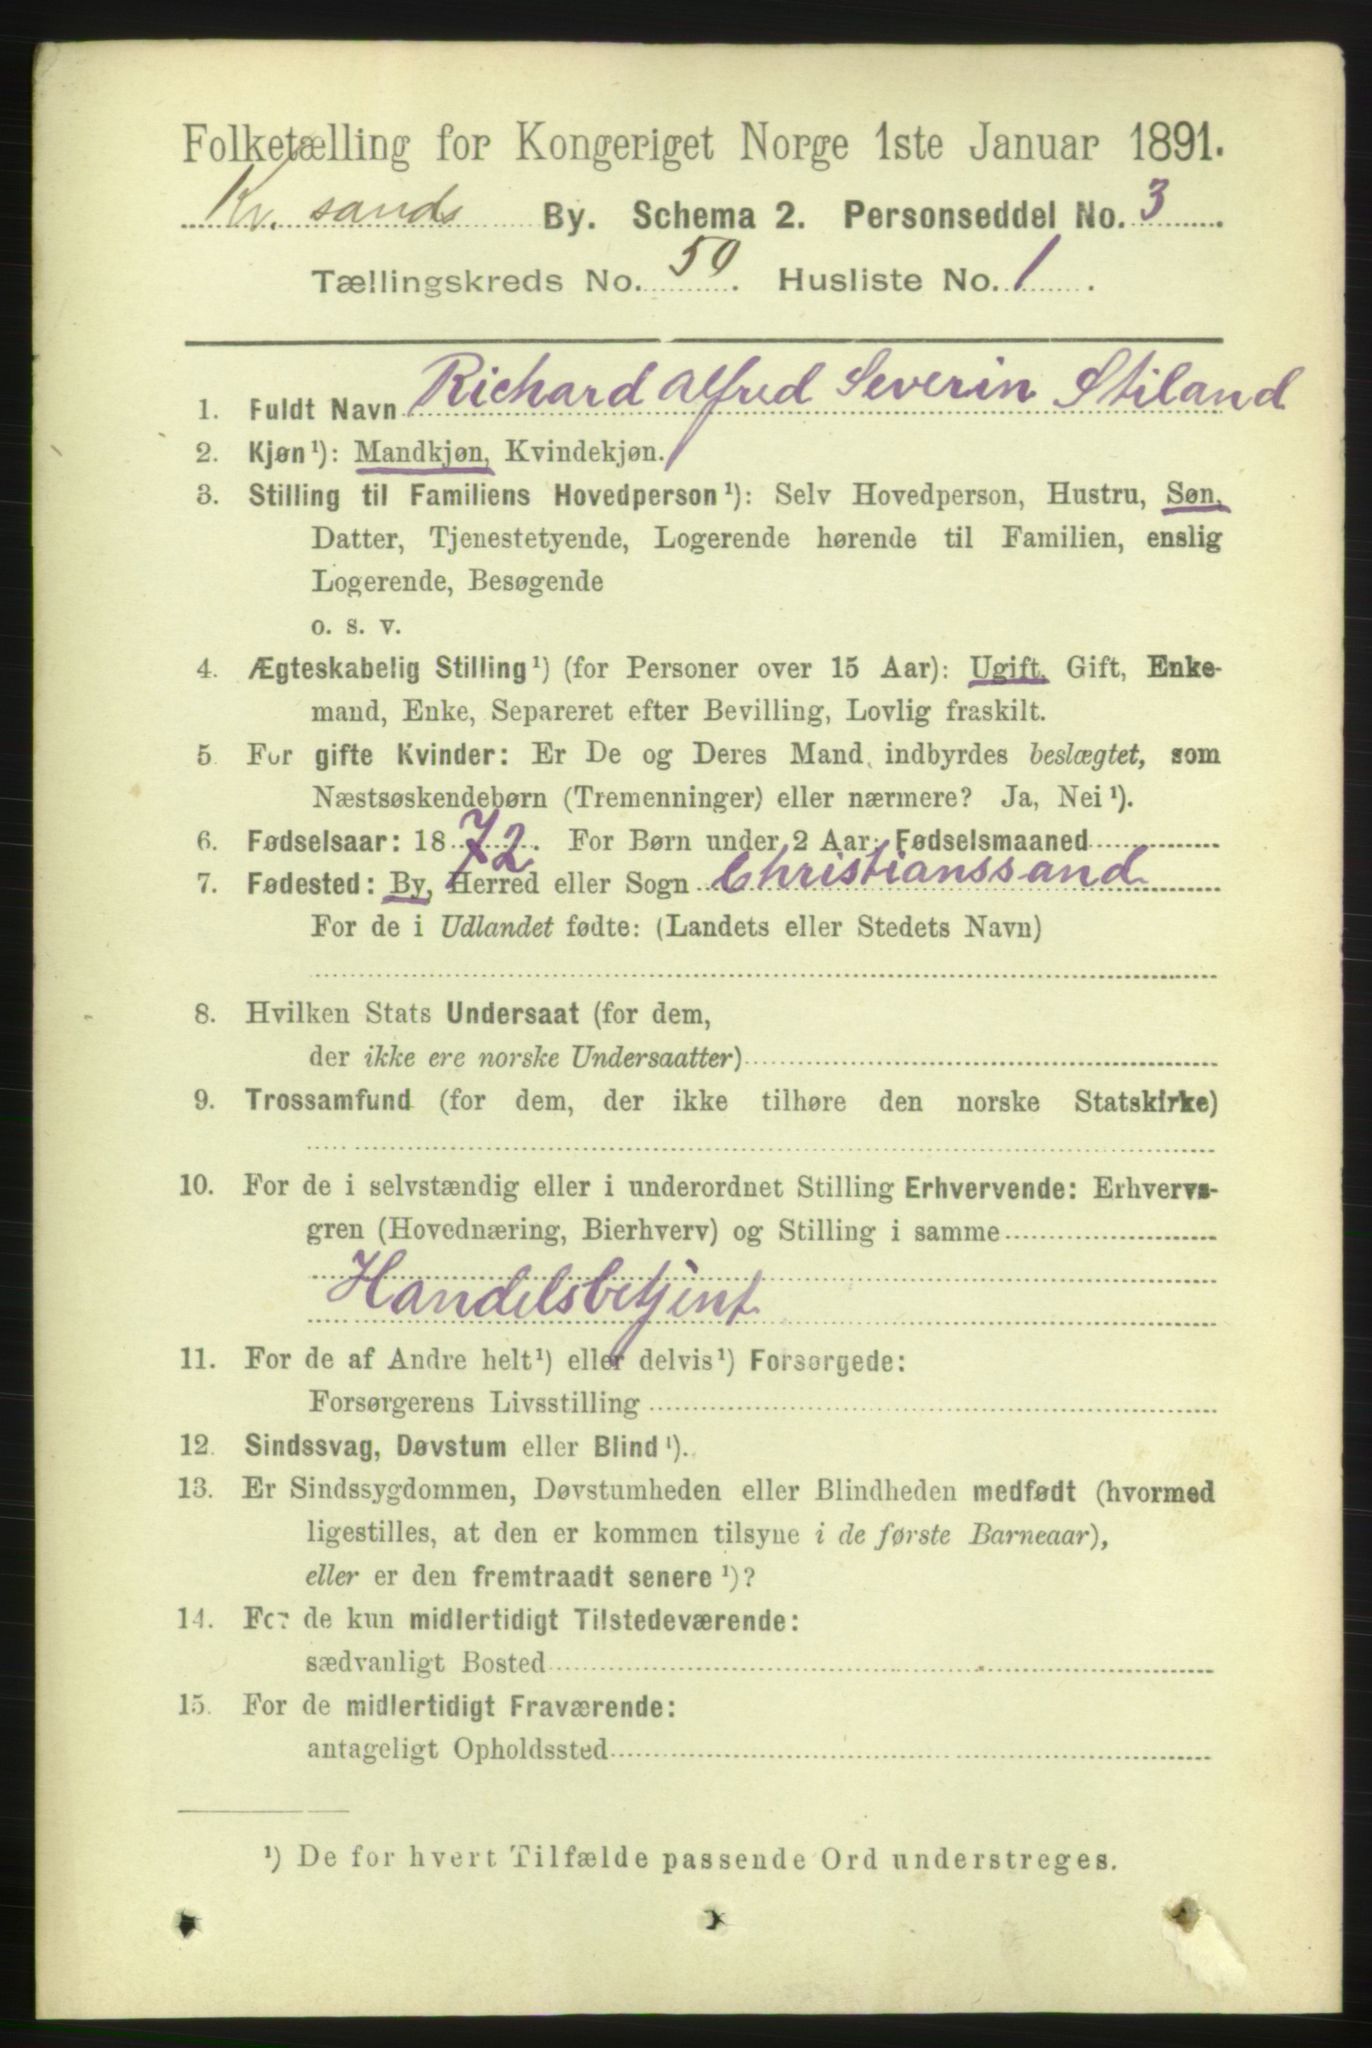 Folketælling for Kongeriget Norge 1ste Januar 1891.
Kr. sands By. Schema 2. Personseddel No. 3
Tællingskreds No. 50. Husliste No. 1.
1. Fuldt Navn Richard Alfred Severin Stiland
2. Kjøn¹): Mandkjøn, Kvindekjøn.
3. Stilling til Familiens Hovedperson¹): Selv Hovedperson, Hustru, Søn,
Datter, Tjenestetyende, Logerende hørende til Familien, enslig
Logerende, Besøgende
o. s. v.
4. Ægteskabelig Stilling¹) (for Personer over 15 Aar): Ugift, Gift, Enke-
mand, Enke, Separeret efter Bevilling, Lovlig fraskilt.
5. For gifte Kvinder: Er De og Deres Mand indbyrdes beslægtet, som
Næstsøskendebørn (Tremenninger) eller nærmere? Ja, Nei¹).
6. Fødselsaar: 1872. For Børn under 2 Aar: Fødselsmaaned
7. Fødested: By, Herred eller Sogn Christianssand
For de i Udlandet fødte: (Landets eller Stedets Navn)
8. Hvilken Stats Undersaat (for dem,
der ikke ere norske Undersaatter)
9. Trossamfund (for dem, der ikke tilhøre den norske Statskirke)
10. For de i selvstændig eller i underordnet Stilling Erhvervende: Erhvervs-
gren (Hovednæring, Bierhverv) og Stilling i samme
Handelsbetjent
11. For de af Andre helt¹) eller delvis¹) Forsørgede:
Forsørgerens Livsstilling
12. Sindssvag, Døvstum eller Blind¹).
13. Er Sindssygdommen, Døvstumheden eller Blindheden medfødt (hvormed
ligestilles, at den er kommen tilsyne i de første Barneaar),
eller er den fremtraadt senere¹)?
14. For de kun midlertidigt Tilstedeværende:
sædvanligt Bosted
15. For de midlertidigt Fraværende:
antageligt Opholdssted
¹) De for hvert Tilfælde passende Ord understreges.